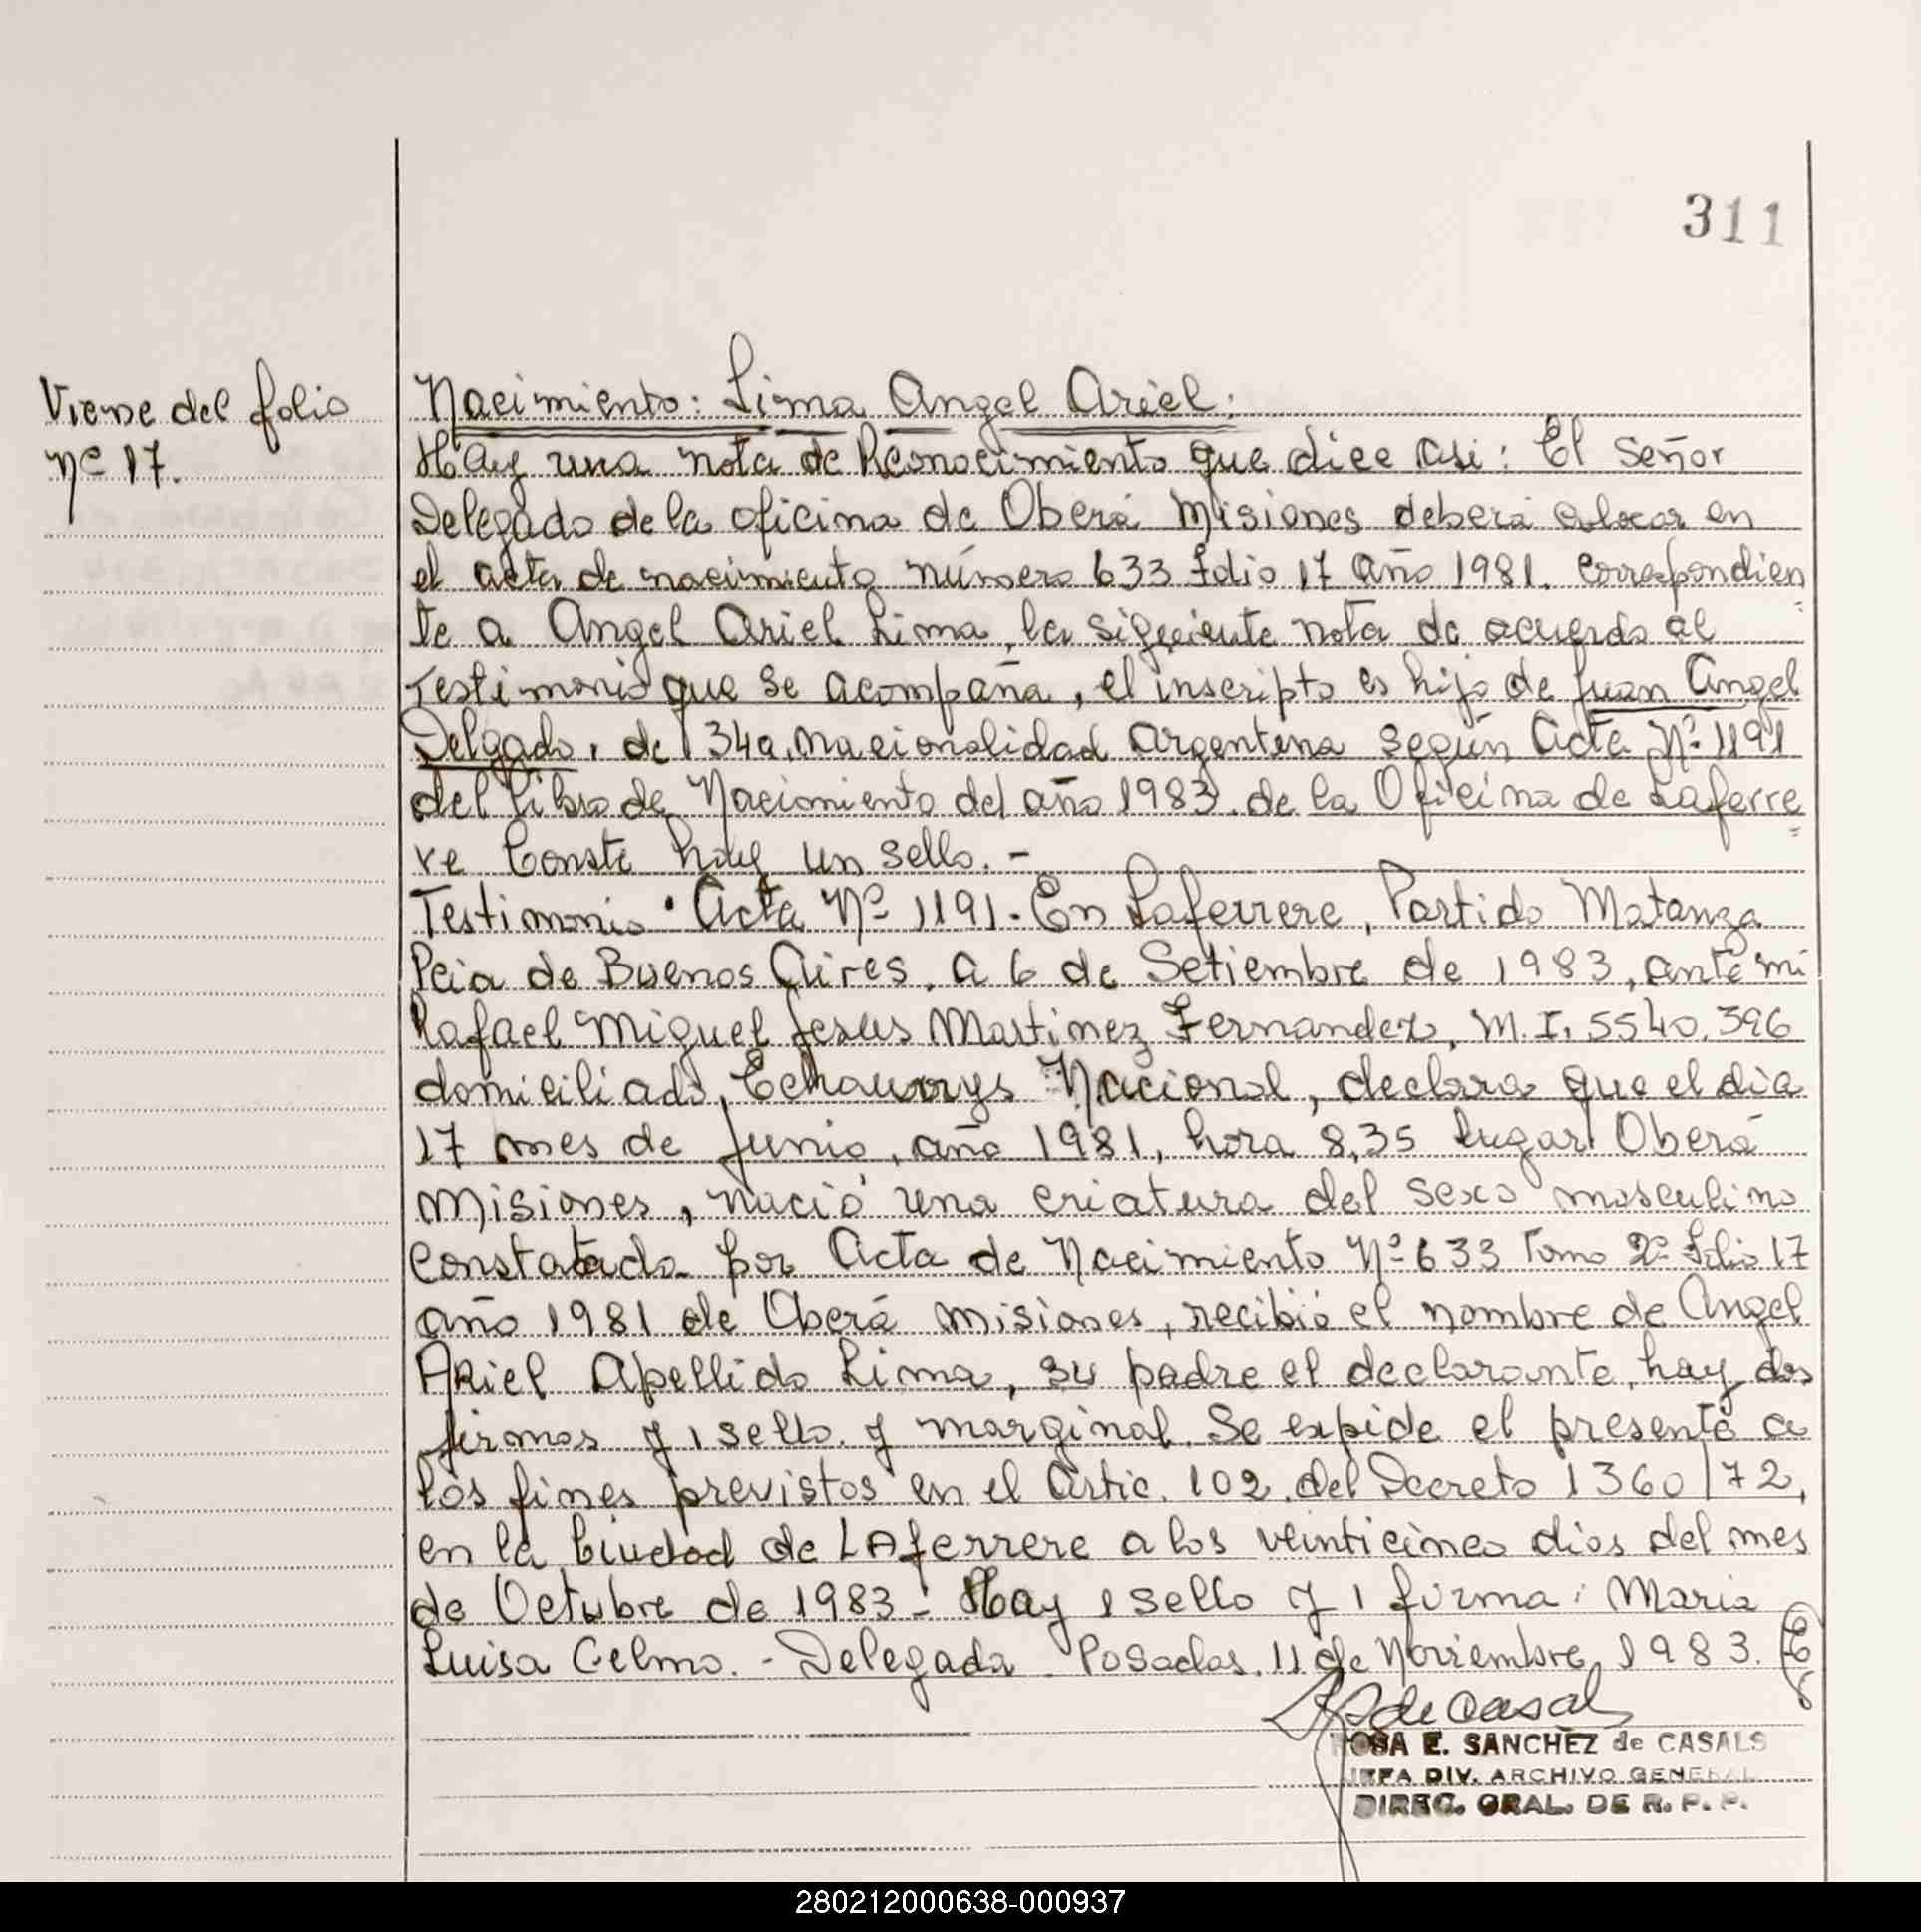 311
Viene del folio
Nº 17.
Nacimiento: Lima Angel Ariel:
Hay una nota de Reconocimiento que dice asi: El Señor
Delegado de la oficina de Oberá Misiones deberá colocar en
el acta de nacimiento número 633 folio 17 año 1981. correspondien
te a Angel Ariel Lima, la siguiente nota de acuerdo al
Testimonio que se acompaña, el inscripto es hijo de Juan Angel
Delgado, de 34a, nacionalidad Argentina según Acta Nº 1191
del Libro de Nacimiento del año 1983. de la Oficina de Laferre
re Conste hay un sello. -
Testimonio · Acta Nº 1191. En Laferrere, Partido Matanza
Pcia de Buenos Aires, a 6 de Setiembre de 1983, ante mi
Rafael Miguel Jesus Martinez Fernandez, M.I. 5540.396
domiciliado, Nacional, declara que el dia
17 mes de Junio, año 1981, hora 8,35 lugar Oberá
Misiones, nació una criatura del sexo masculino
Constatado por Acta de Nacimiento Nº 633 Tomo 2º folio 17
año 1981 de Oberá Misiones, recibió el nombre de Angel
Ariel Apellido Lima, su padre el declarante, hay dos
firmas y 1 sello. y marginal. Se expide el presente a
los fines previstos en el Artic. 102. del Decreto 1360/72,
en la Ciudad de LAferrere a los veinticinco dias del mes
de Octubre de 1983 - Hay 1 sello y 1 firma: Maria
Luisa Celmo. - Delegada. Posadas. 11 de Noviembre 1983.
de Casals
ROSA E. SANCHEZ de CASALS
JEFA DIV. ARCHIVO GENERAL
DIREC. GRAL. DE R. P. P.
280212000638-000937